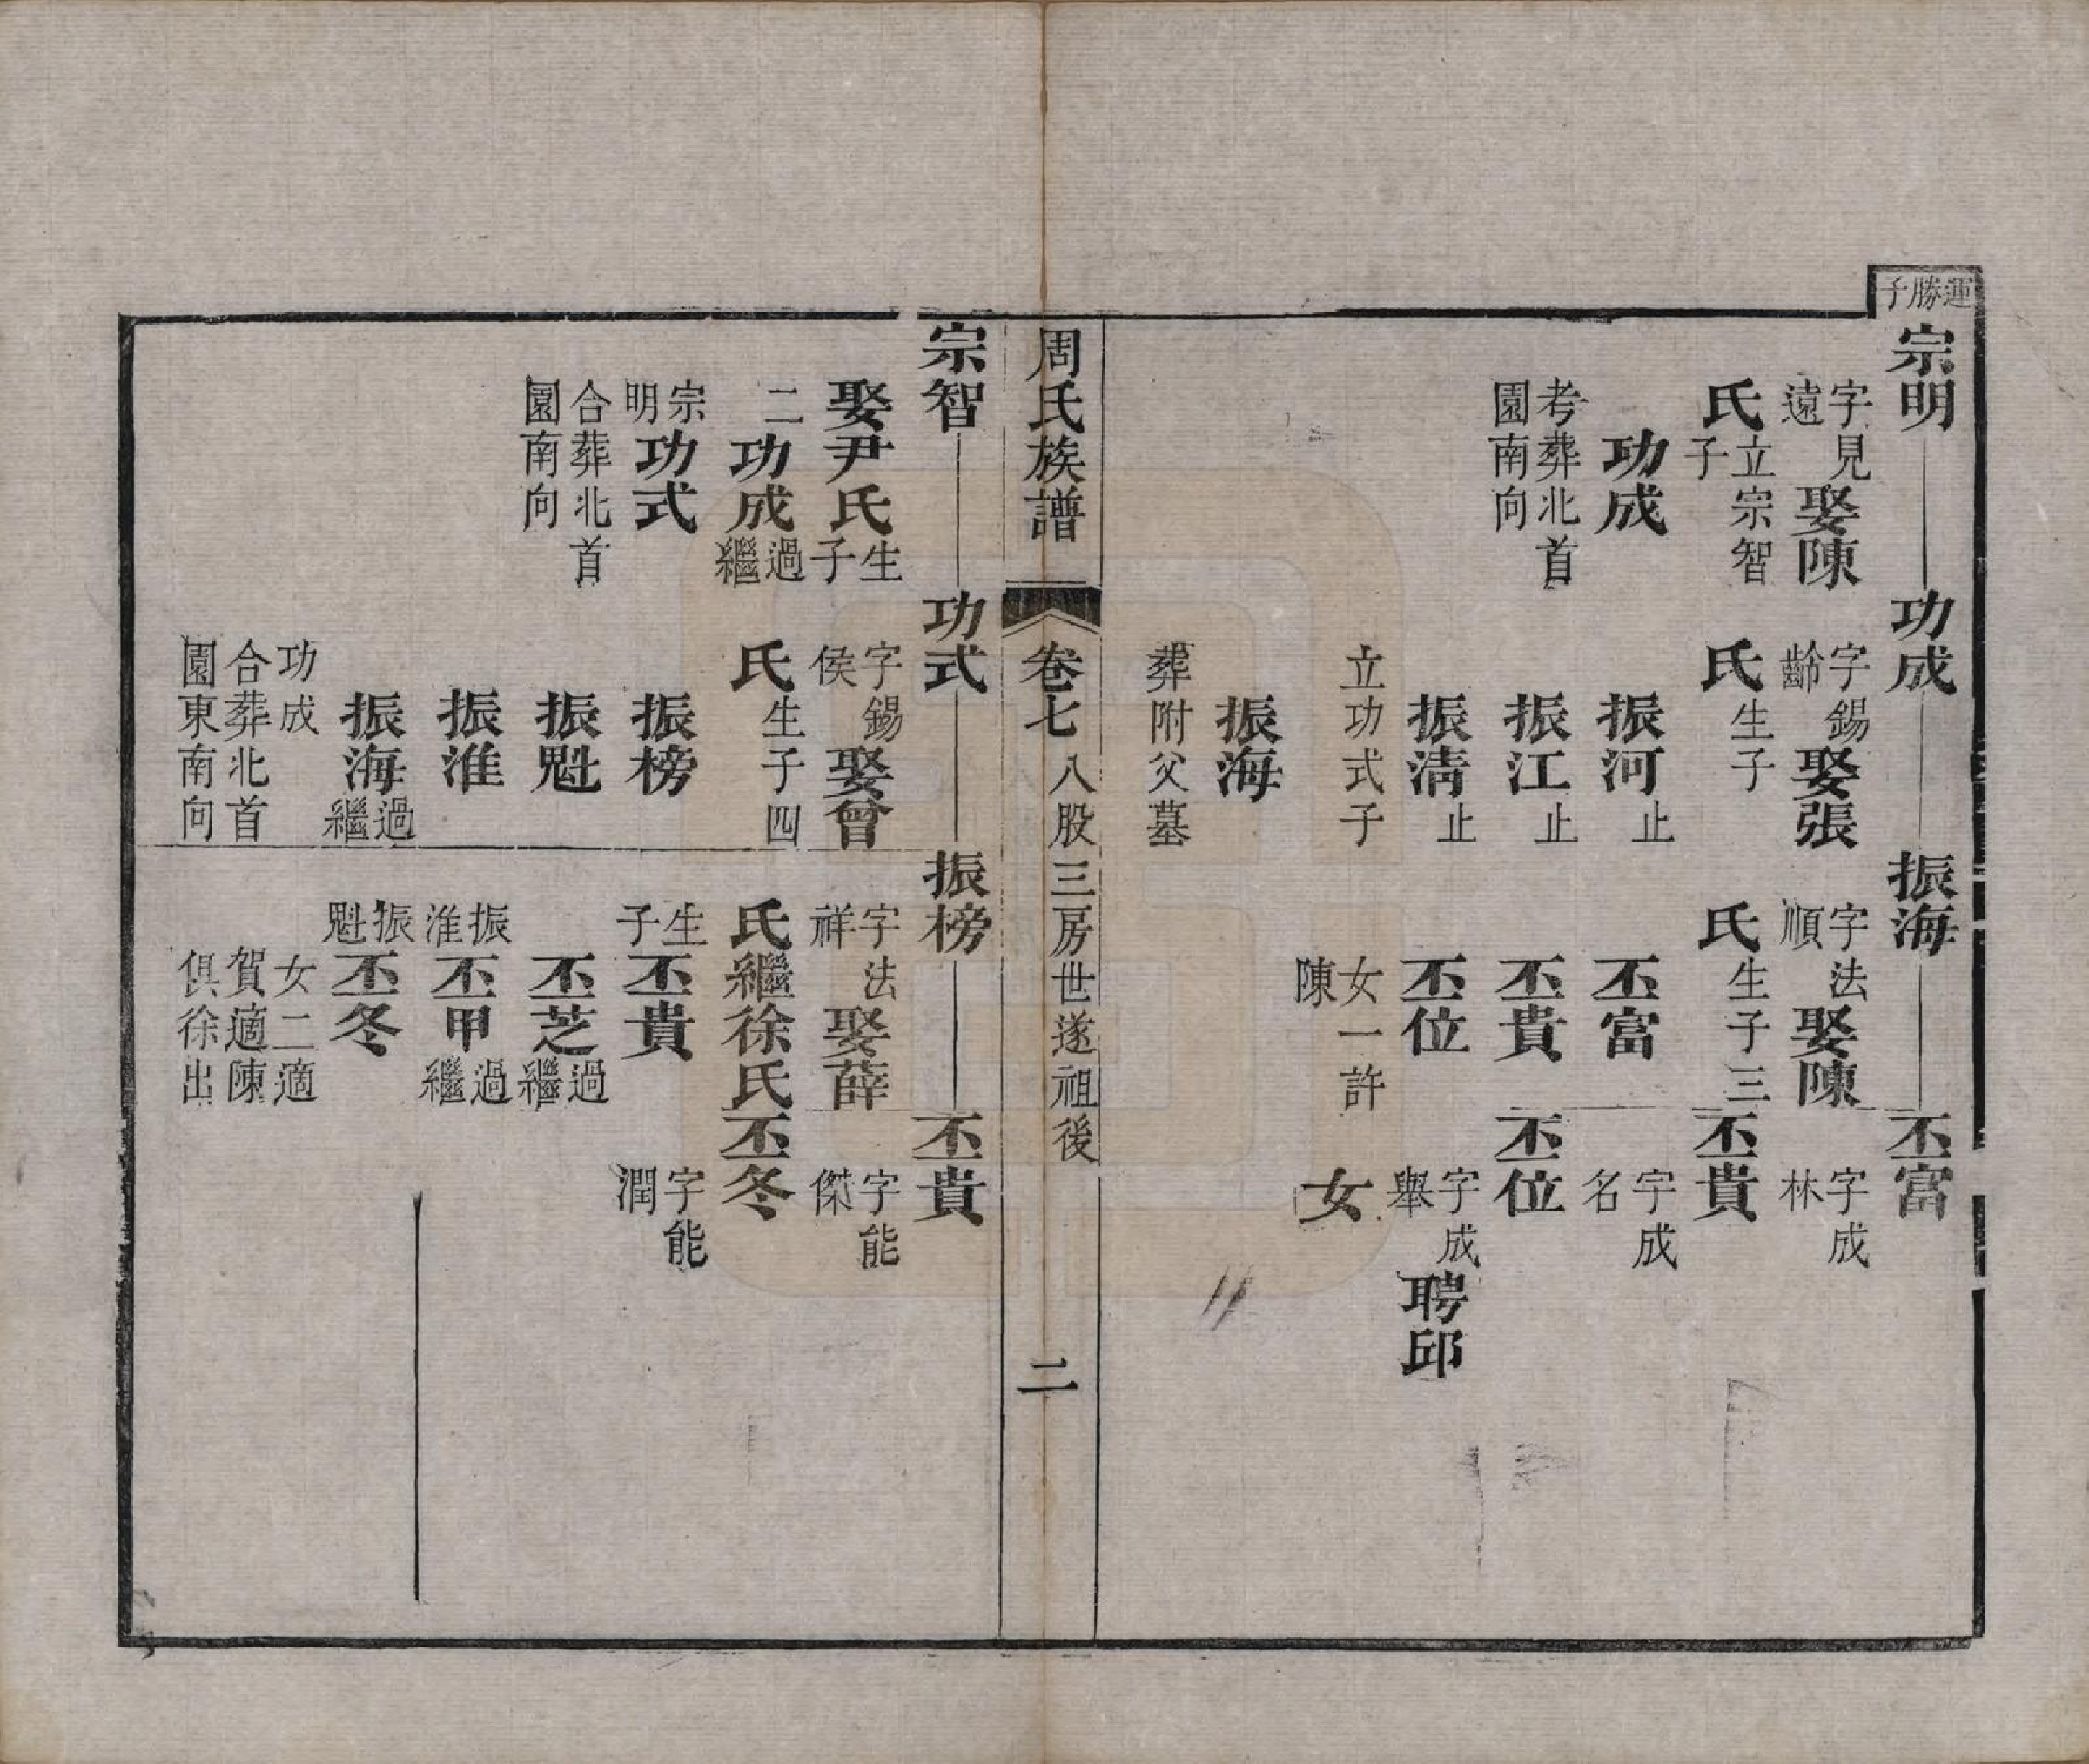 運勝子
宗明 功成 振海 丕富
字見遠娶陳 字錫齡娶張 字法順娶陳 字成林
氏立宗智子 氏生子 氏生子三 丕貴
功成 振河止 丕富 字成名
考葬北首園南向 振江止 丕貴 丕位
振清止 丕位 字成舉聘邱
立功式子 女一許陳 女
振海
葬附父墓
周氏族譜 卷七 八股三房世遂祖後 二
宗智 功式 振榜 丕貴
娶尹氏生子 字錫侯娶曾 字法祥娶薛 字能傑
二功成過繼 氏生子四 氏繼徐氏 丕冬
宗明功式 振榜 生子丕貴 字能潤
合葬北首園南向 振魁 丕芝過繼
振淮 振淮丕甲過繼
振海過繼 振魁丕冬
功成合葬北首園東南向 女二適賀適陳俱徐出